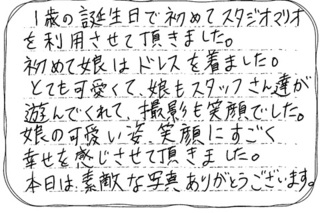 1歳の誕生日で初めてスタジオマリオ
を利用させて頂きました。
初めて娘はドレスを着ました。
とても可愛くて、娘もスタッフさん達が
遊んでくれて、撮影も笑顔でした。
娘の可愛い姿、笑顔にすごく
幸せを感じさせて頂きました。
本日は素敵な写真ありがとうございます。